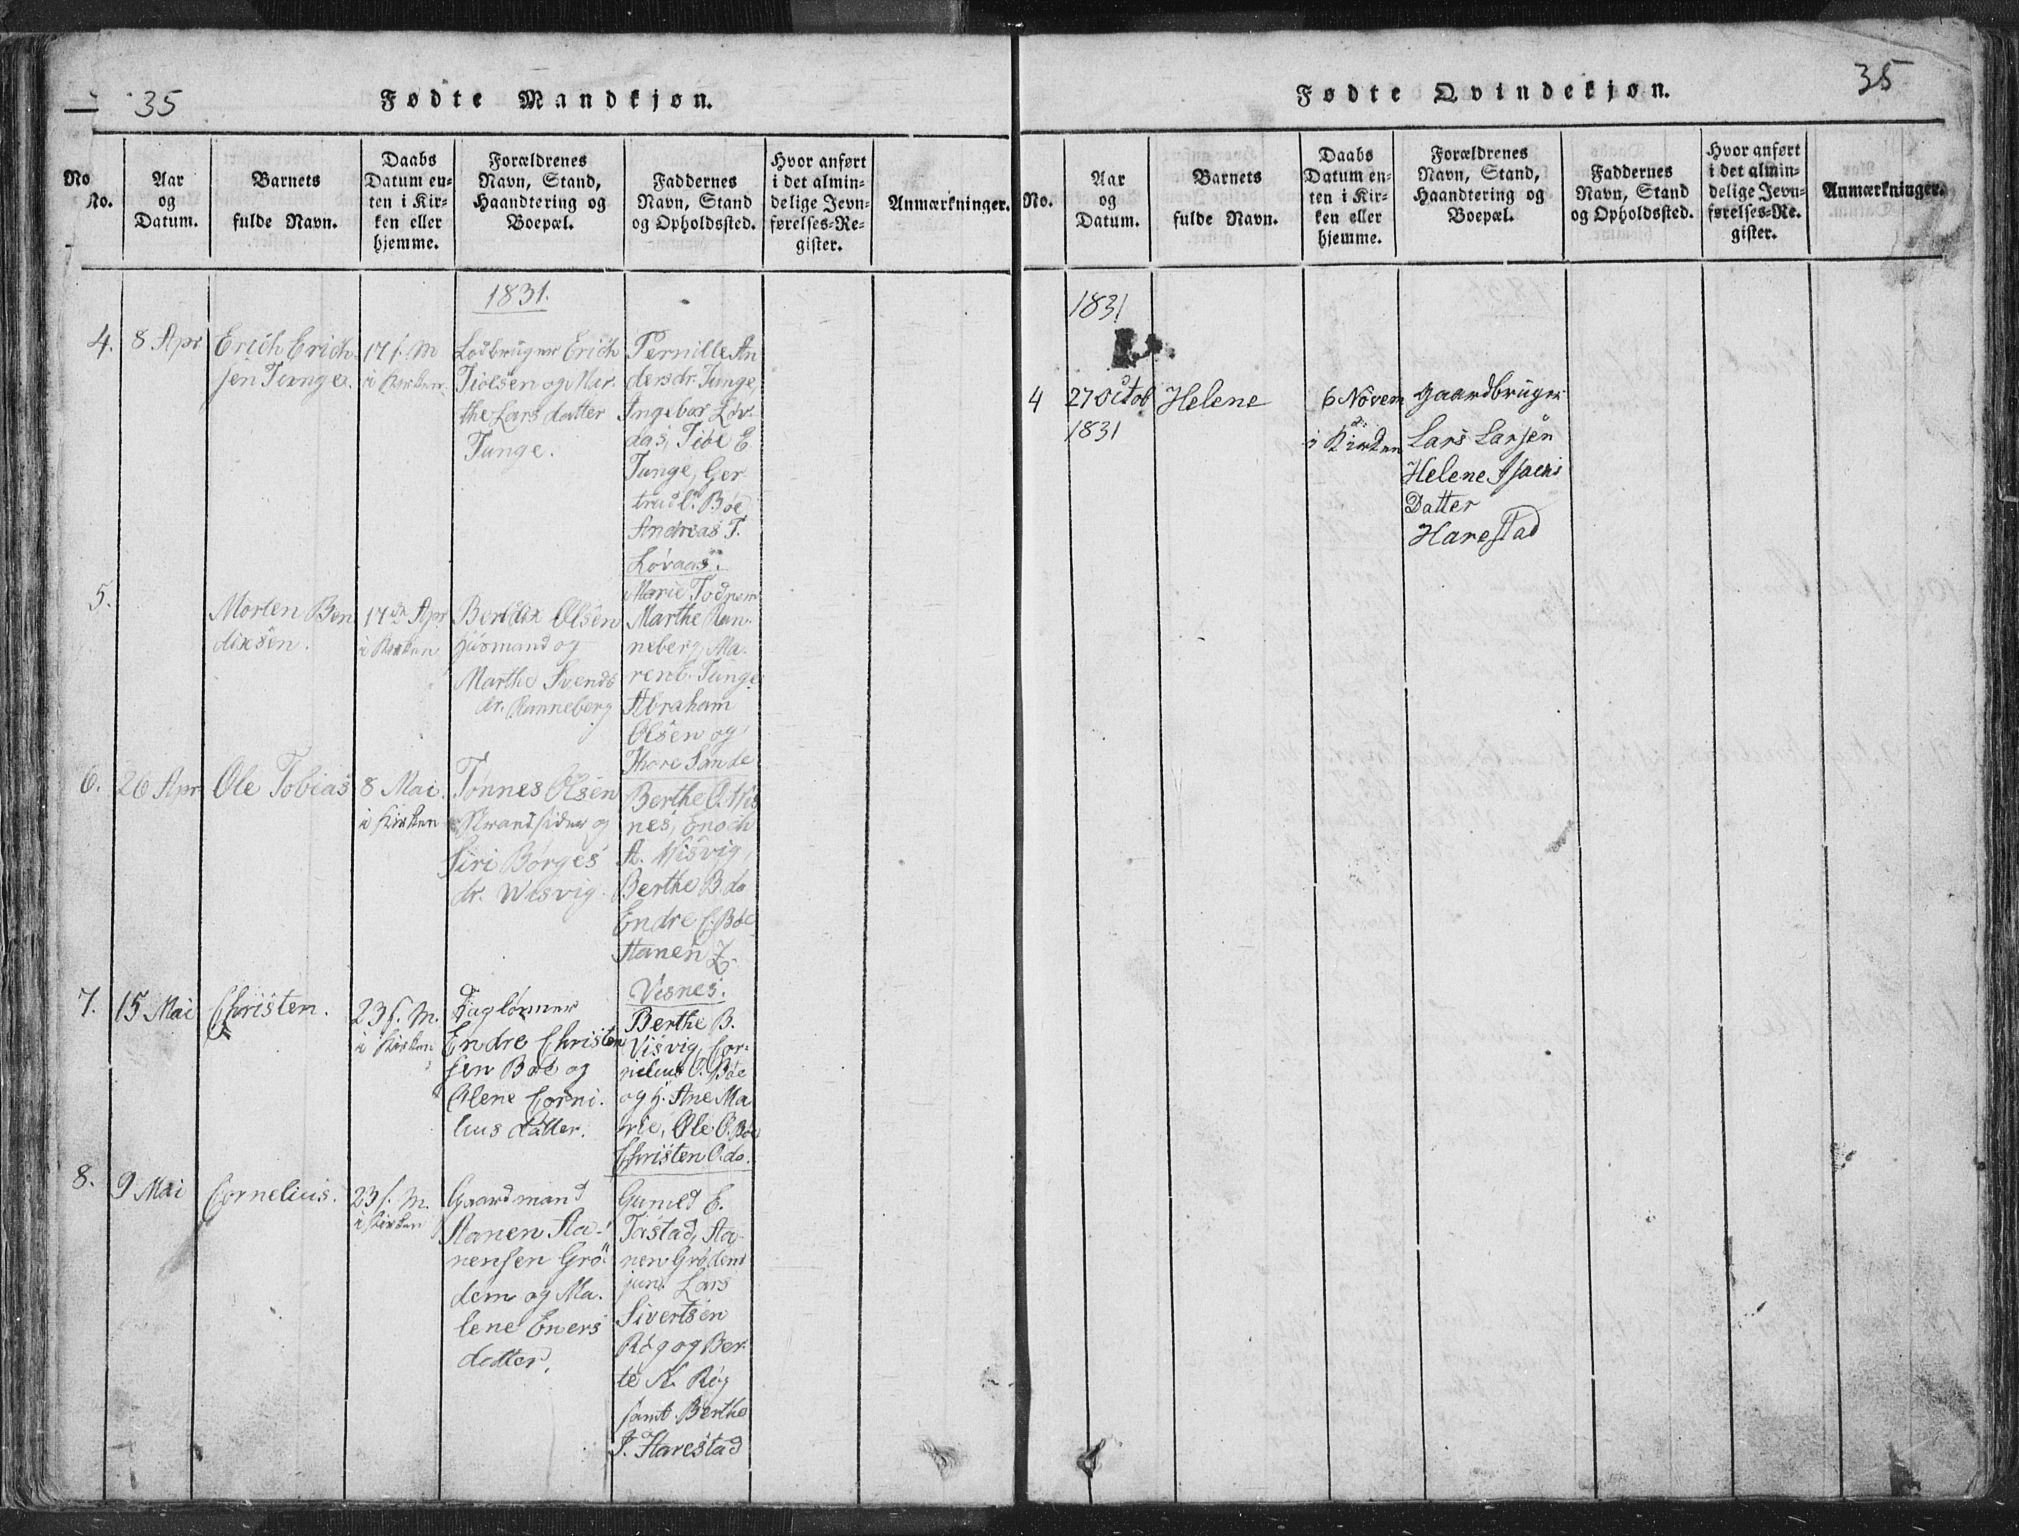 35
Fødte Mandkjøn.
No.
No.
Aar
og
Datum.
Barnets
fulde Navn.
Daabs
Datum en-
ten i Kir-
ken eller
hjemme.
Forældrenes
Navn, Stand,
Haandtering og
Boepæl.
Faddernes
Navn, Stand
og Opholdssted.
Hvor anført
i det almin-
delige Jevn-
førelses-Re-
gister.
Anmærkninger.
1831.
4.
8 Apr
Erich Erich-
sen Tunge.
17 s. M
i Kirken
Lodbruger Erich
Tioesen og Mar-
the Lars datter
Tunge.
Pernille An
dersdr. Tunge
Ingebor Løv
das, Tiøe E
Tunge, Ger
trud L. Bøe
Andreas T.
Løvaas.
5.
Morten Ben
dixsen.
17de Apr
i Kirken
Bendix Olsen
Huusmand og
Marthe Svends
dr. Ranneberg
Marie Todnem
Marthe Ran-
neberg, Ma-
ren E. Tunge
Abraham
Olsen og
Thore Sande
6.
26 Apr
Ole Tobias
8 Mai
i Kirken
Tønnes Olsen
Strandsider og
Siri Børges
dr. Wisvig.
Berthe O. Vis
nes, Enoch
A. Wisvig,
Berthe B. do
Endre C. Bøe
Hanen Z.
Visnes.
7.
15 Mai
Christen.
23 s. M.
i Kirken
Daglønner
Endre Christen
sen Bøe og
Olene Corni-
lius datter.
Berthe B.
Visvig, Cor-
nelius O. Bøe
og H. Ane Ma
rie, Ole O. Bøe
Christen O. do.
8.
9 Mai
Cornelius.
23 s. M.
i Kirken
Gaardmand
Hanen Ha-
nensen Grø
dem og Ma-
lene Eners
datter.
Gunild E.
Tastad, Ha-
nen Grødem
jun. Lars
Sivertsen
Røg og Ber-
te K. Røg
samt Berthe
J. Harestad
35
Fødte Qvindekjøn.
No.
Aar
og
Datum.
Barnets
fulde Navn.
Daabs
Datum en-
ten i Kir-
ken eller
hjemme.
Forældrenes
Navn, Stand,
Haandtering og
Boepæl.
Faddernes
Navn, Stand
og Opholdssted.
Hvor anført
i det almin-
delige Jevn-
førelses-Re.
gister.
Anmærkninger.
1831
4
27 Octob
1831
Helene
6 Novem
i Kirken
Gaardbruger
Lars Larsen
Helene Isacks
Datter
Harestad